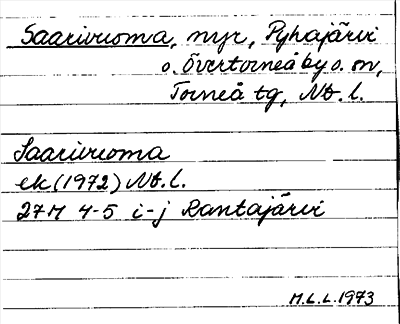 Saarivuoma, myr, Pyhajärvi
o. Övertorneå by o. sn,
Torneå tg, Nb. l.
Saarivuoma
ek (1972) Nb. l.
27M 4-5 i-j Rantajärvi
M.L.L. 1973